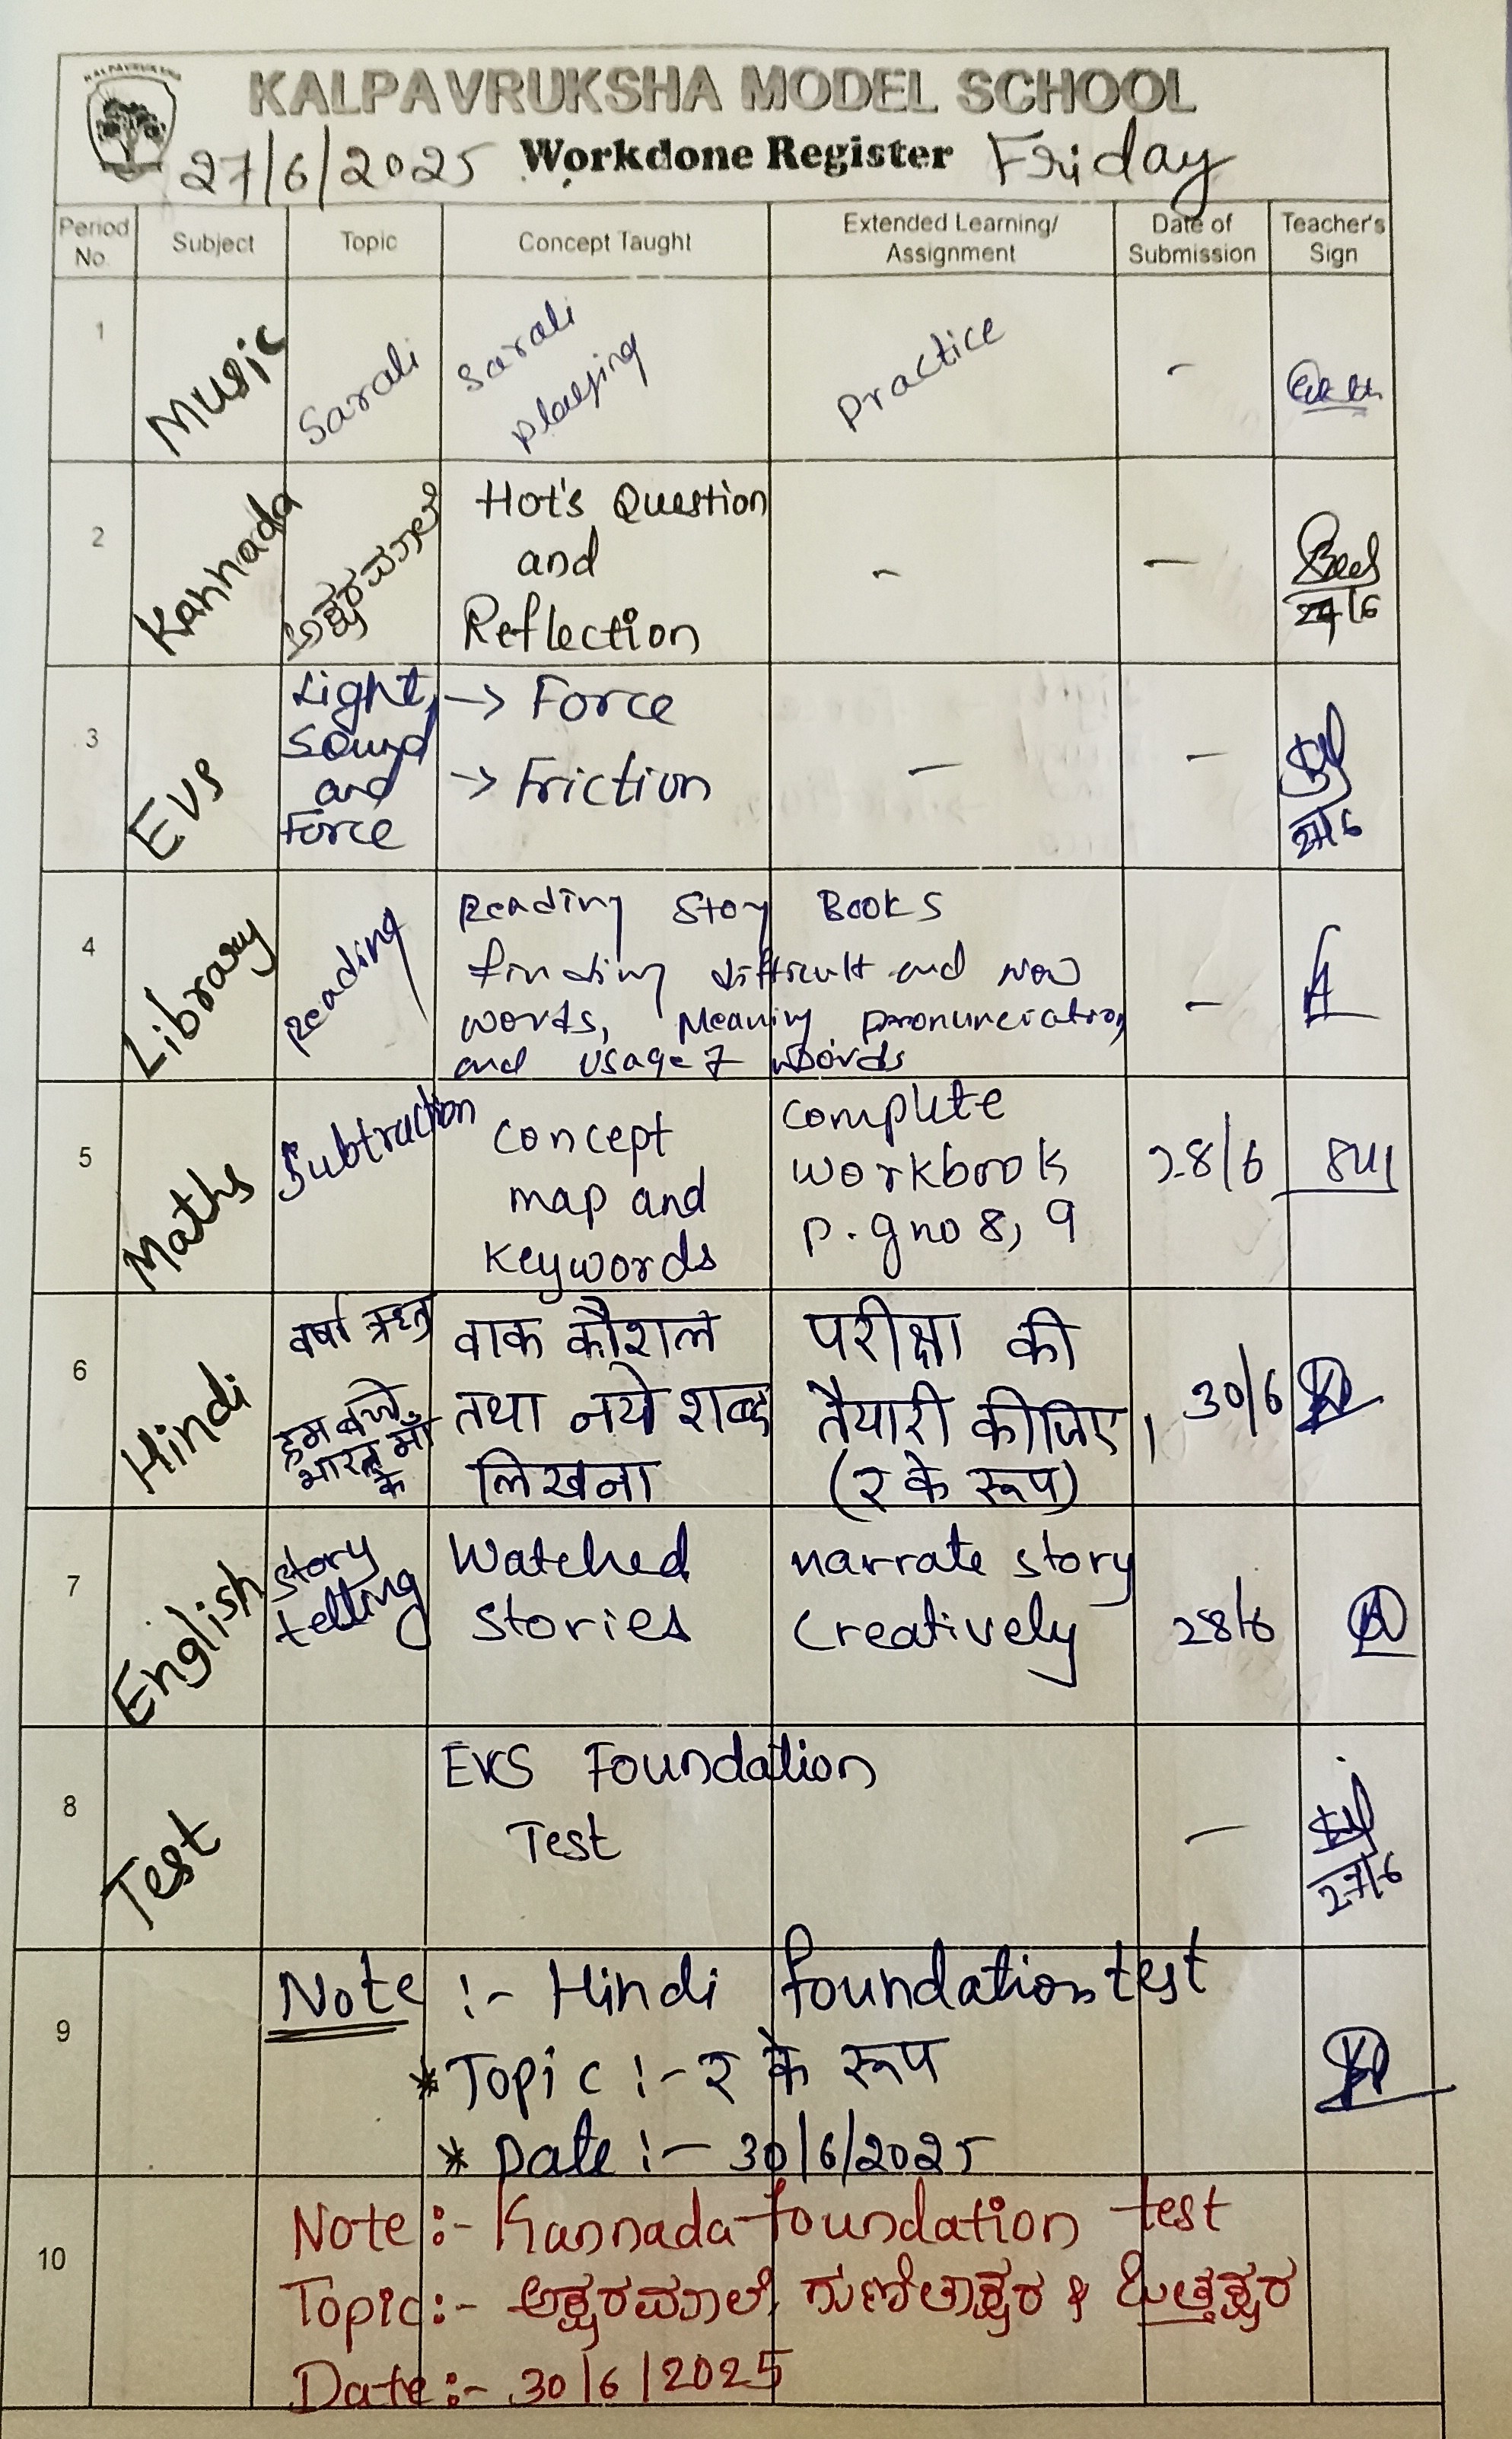 KALPAVRUKSHA
KALPAVRUKSHA MODEL SCHOOL
27/6/2025 Workdone Register Friday
Period No. Subject Topic Concept Taught Extended Learning/ Assignment Date of Submission Teacher's Sign
1 Music Sarali Sarali playing Practice -
2 Kannada ಅಕ್ಷರಮಾಲೆ Hot's Question and Reflection - - 27/6
3 EVS Light, Sound and Force -> Force -> Friction - - 27/6
4 Library Reading Reading Story Books
finding difficult and new
words, Meaning pronunciation -
and usage of words
5 Maths Subtraction concept map and keywords complete workbook p.g no 8, 9 28/6
6 Hindi वर्षा ऋतु हम बच्चे भारत माँ के वाक कौशल तथा नये शब्द लिखना परीक्षा की तैयारी कीजिए। (र के रूप) 30/6
7 English story telling Watched stories narrate story creatively 28/6
8 Test EVS Foundation Test - 27/6
9 Note :- Hindi foundation test
* Topic :- र के रूप
* Date :- 30/6/2025
10 Note :- Kannada foundation test
Topic :- ಅಕ್ಷರಮಾಲೆ, ಗುಣಿತಾಕ್ಷರ &
Date :- 30/6/2025